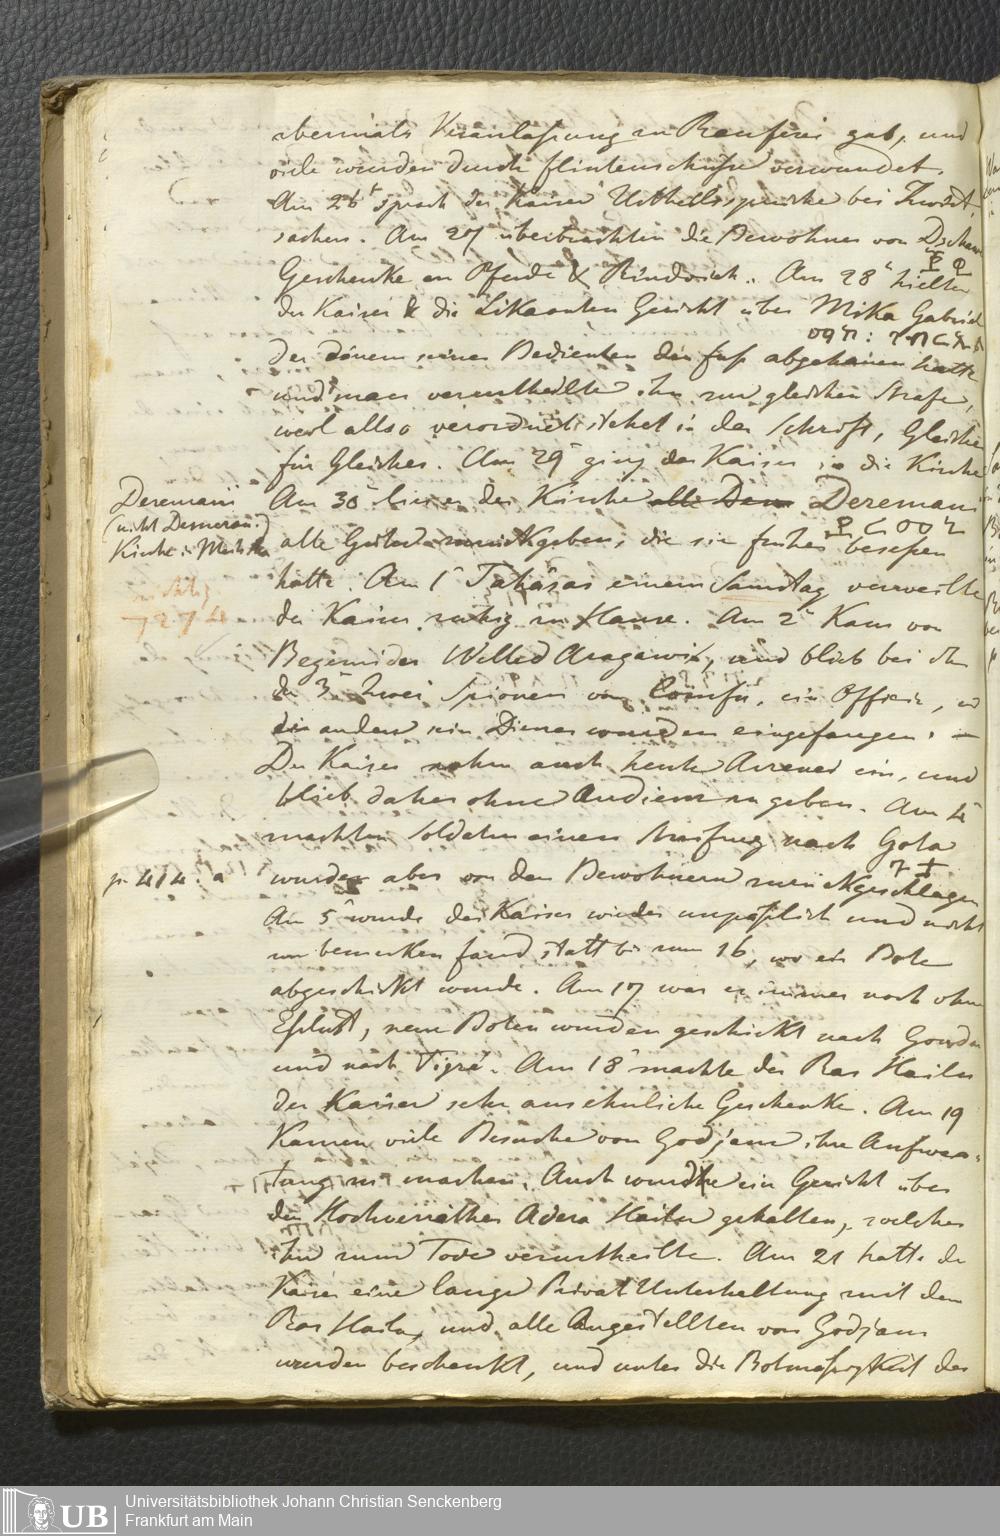 abermals Veranlaßung zu Rauferei gab, und
viele wurden durch flintenschüße verwundet.
Am 26 sprach der Kaiser Urtheilssprüche bei Zwist
sachen. Am 27 überbrachten die Bewohner von
Geschenke an Pferde & Rindvieh. Am 28 hielten
der Kaiser & die Likaonten Gericht über Mika Gabriel
der einem seiner Bedienten den fuß abgehauen hatte
und man verurtheilte ihn zur gleichen Strafe,
weil also verordnet stehet in der Schrift, Gleiches
für Gleiches. Am 29 ging der Kaiser in die Kirche
Deremani
(nicht
Kirche
Am 30 liess er der Kirche Deremani
alle Güter zurückgeben, die sie früher besessen
hatte. Am 1 Tahasas einem Samstag verweilte
richtig
7274
der Kaiser ruhig zu Hause. Am 2 Kam von
Begemider Welled Aragawi, und blieb bei ihm
den 3 Zwei Spionen von, ein Officir,
der andere sein Diener wurden eingefangen. —
Der Kaiser nahm auch heute Arzenei ein, und
blieb daher ohne Audienz zu geben. Am 4
machten Soldaten einen Streifzug nach Gota
p. 414. a
wurden aber von den Bewohnern zurückgeschlagen
Am 5 wurde der Kaiser wieder unpäßlich und nichts
zu bemerken fand statt bis zum 16, wo ein Bote
abgeschickt wurde. Am 17 war er immer noch ohne
Eßlust, neue Boten wurden geschickt nach
und nach Tigré. Am 18 machte der Ras Hailu
der Kaiser sehr ansehnliche Geschenke. Am 19
Kamen viele Besuche von Godjam ihre Aufwar-
tung zu machen. Auch wurde ein Gericht über
den Hochverräther Adera Hailu gehalten, welches
ihn zum Tode verurtheilte. Am 21 hatte der
Kaiser eine lange Privat Unterhaltung mit dem
Ras Hailu, und alle Angestellten von Godjam
wurden beschenkt, und unter die Botmäßigkeit des
UB
Universitätsbibliothek Johann Christian Senckenberg
Frankfurt am Main